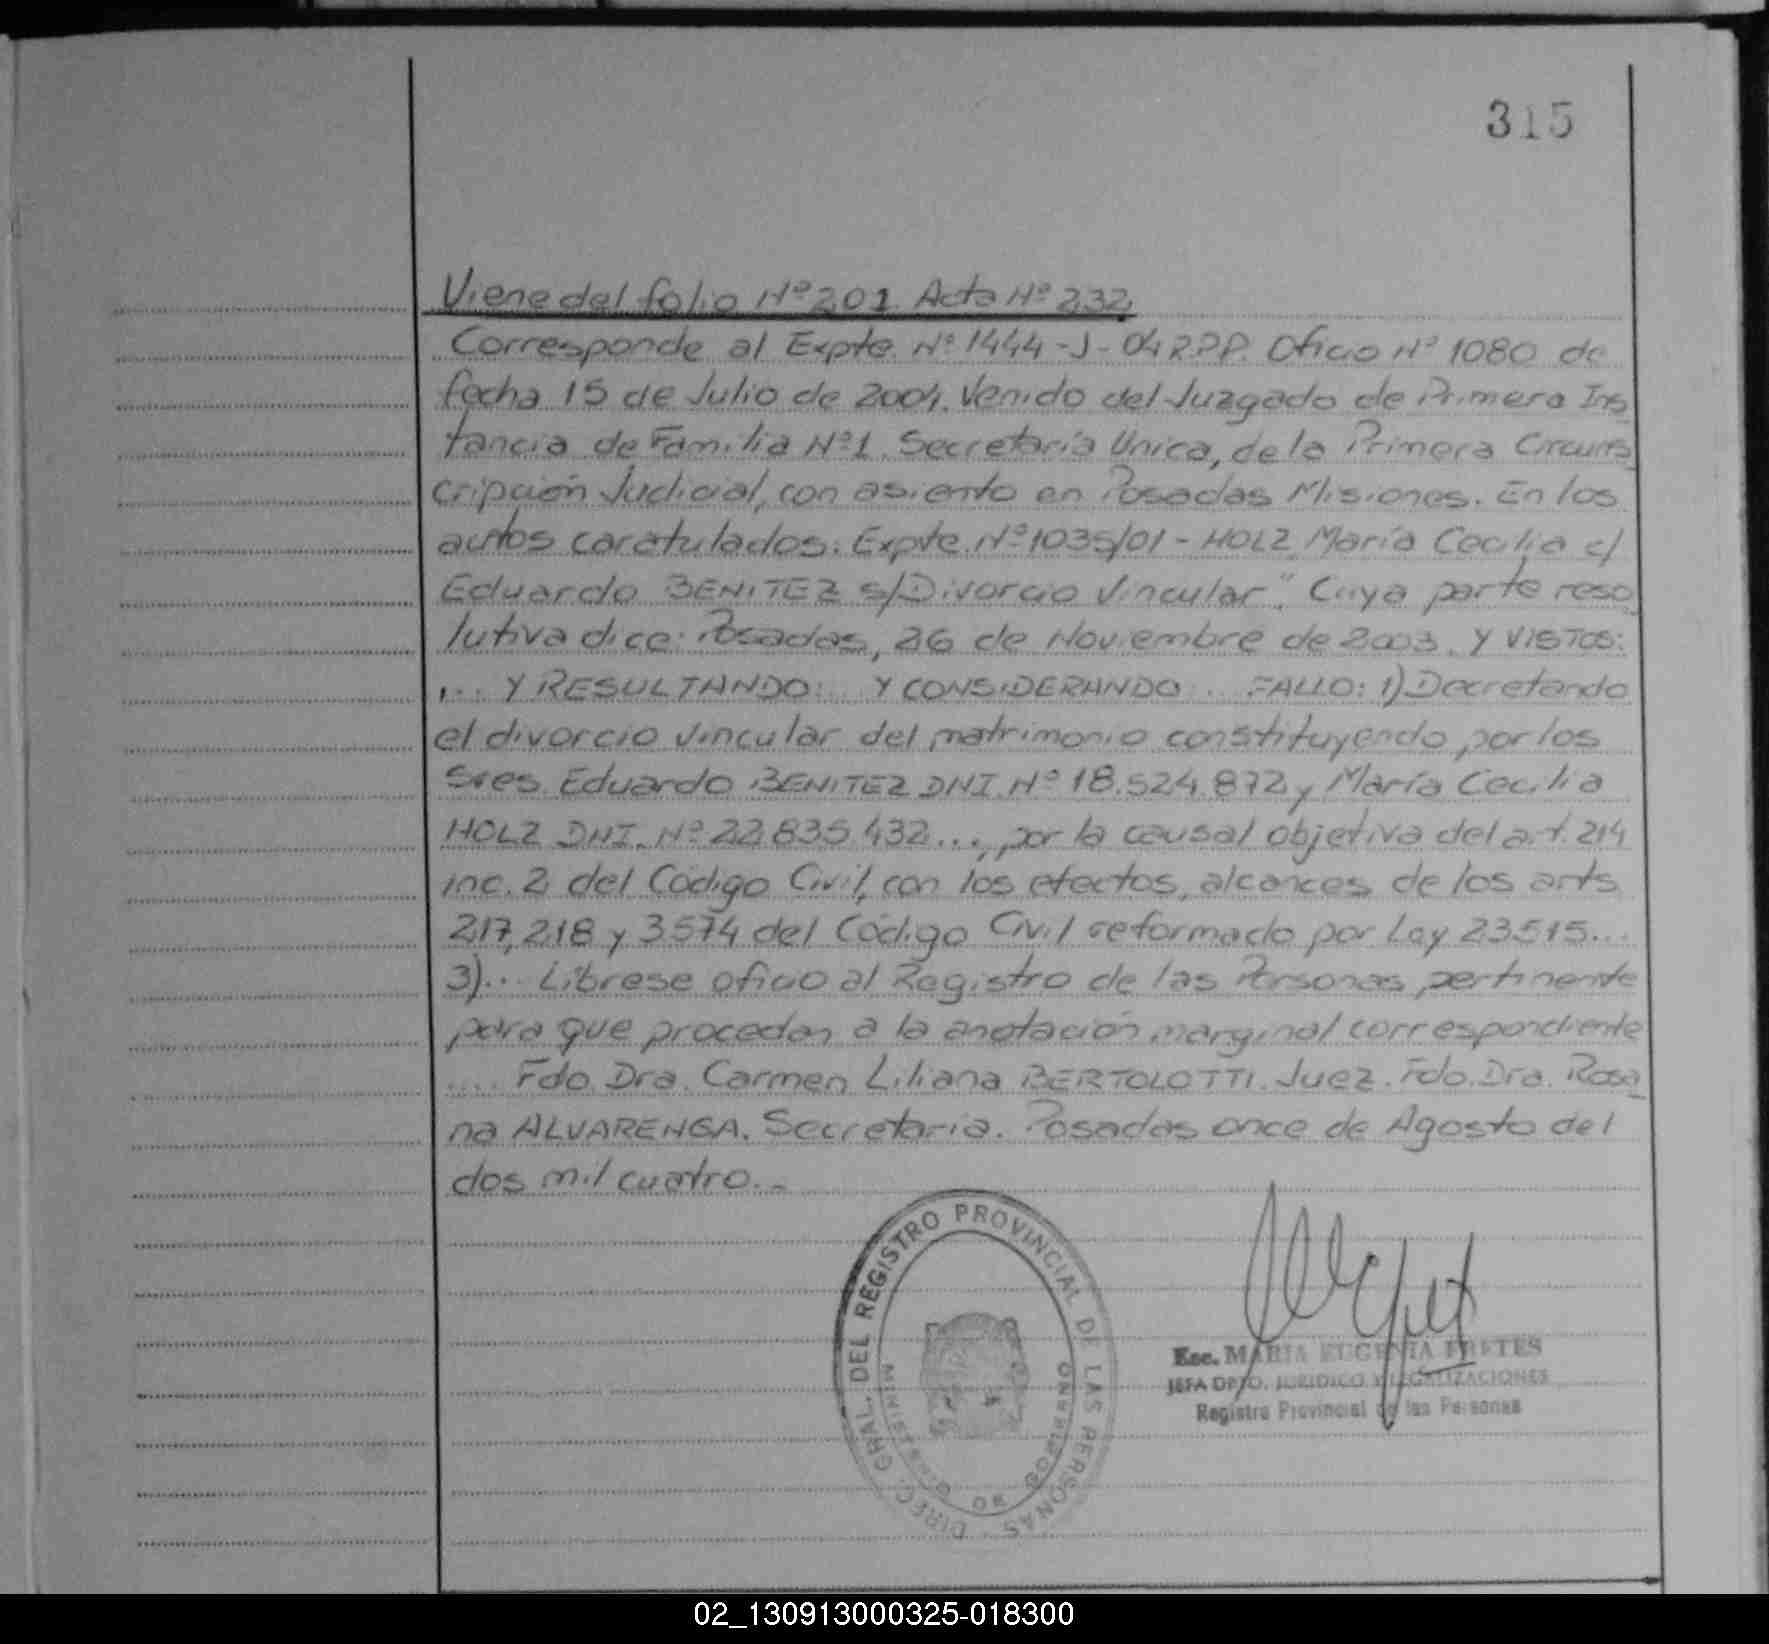 315
Viene del folio Nº 201. Acta Nº 232.
Corresponde al Expte Nº 1444-J-04 R.P.P. Oficio Nº 1080 de
fecha 15 de Julio de 2004. Venido del Juzgado de Primera Ins
tancia de Familia Nº1. Secretaría Unica, de la Primera Circuns
cripción Judicial, con asiento en Posadas Misiones. En los
autos caratulados: Expte. Nº 1035/01 - HOLZ María Cecilia c/
Eduardo BENITEZ s/Divorcio Vincular". Cuya parte reso
lutiva dice: Posadas, 26 de Noviembre de 2003. Y VISTOS:
... Y RESULTANDO: Y CONSIDERANDO .. FALLO: 1) Decretando
el divorcio vincular del matrimonio constituyendo por los
Sres. Eduardo BENITEZ DNI. Nº 18.524.872 y María Cecilia
HOLZ DNI. Nº 22.835.432..., por la causal objetiva del art. 214
inc. 2 del Código Civil, con los efectos, alcances de los arts
217, 218 y 3574 del Código Civil reformado por Ley 23515...
3)... Líbrese oficio al Registro de las Personas pertinente
para que procedan a la anotación marginal correspondiente
.... Fdo. Dra. Carmen Liliana BERTOLOTTI. Juez. Fdo. Dra. Rosa
na ALVARENGA. Secretaria. Posadas once de Agosto del
dos mil cuatro.-
DIREC. GRAL. DEL REGISTRO PROVINCIAL DE LAS PERSONAS
MINISTERIO DE GOBIERNO
Esc. MARIA EUGENIA FRETES
JEFA DPTO. JURIDICO Y LEGALIZACIONES
Registro Provincial de las Personas
02_130913000325-018300